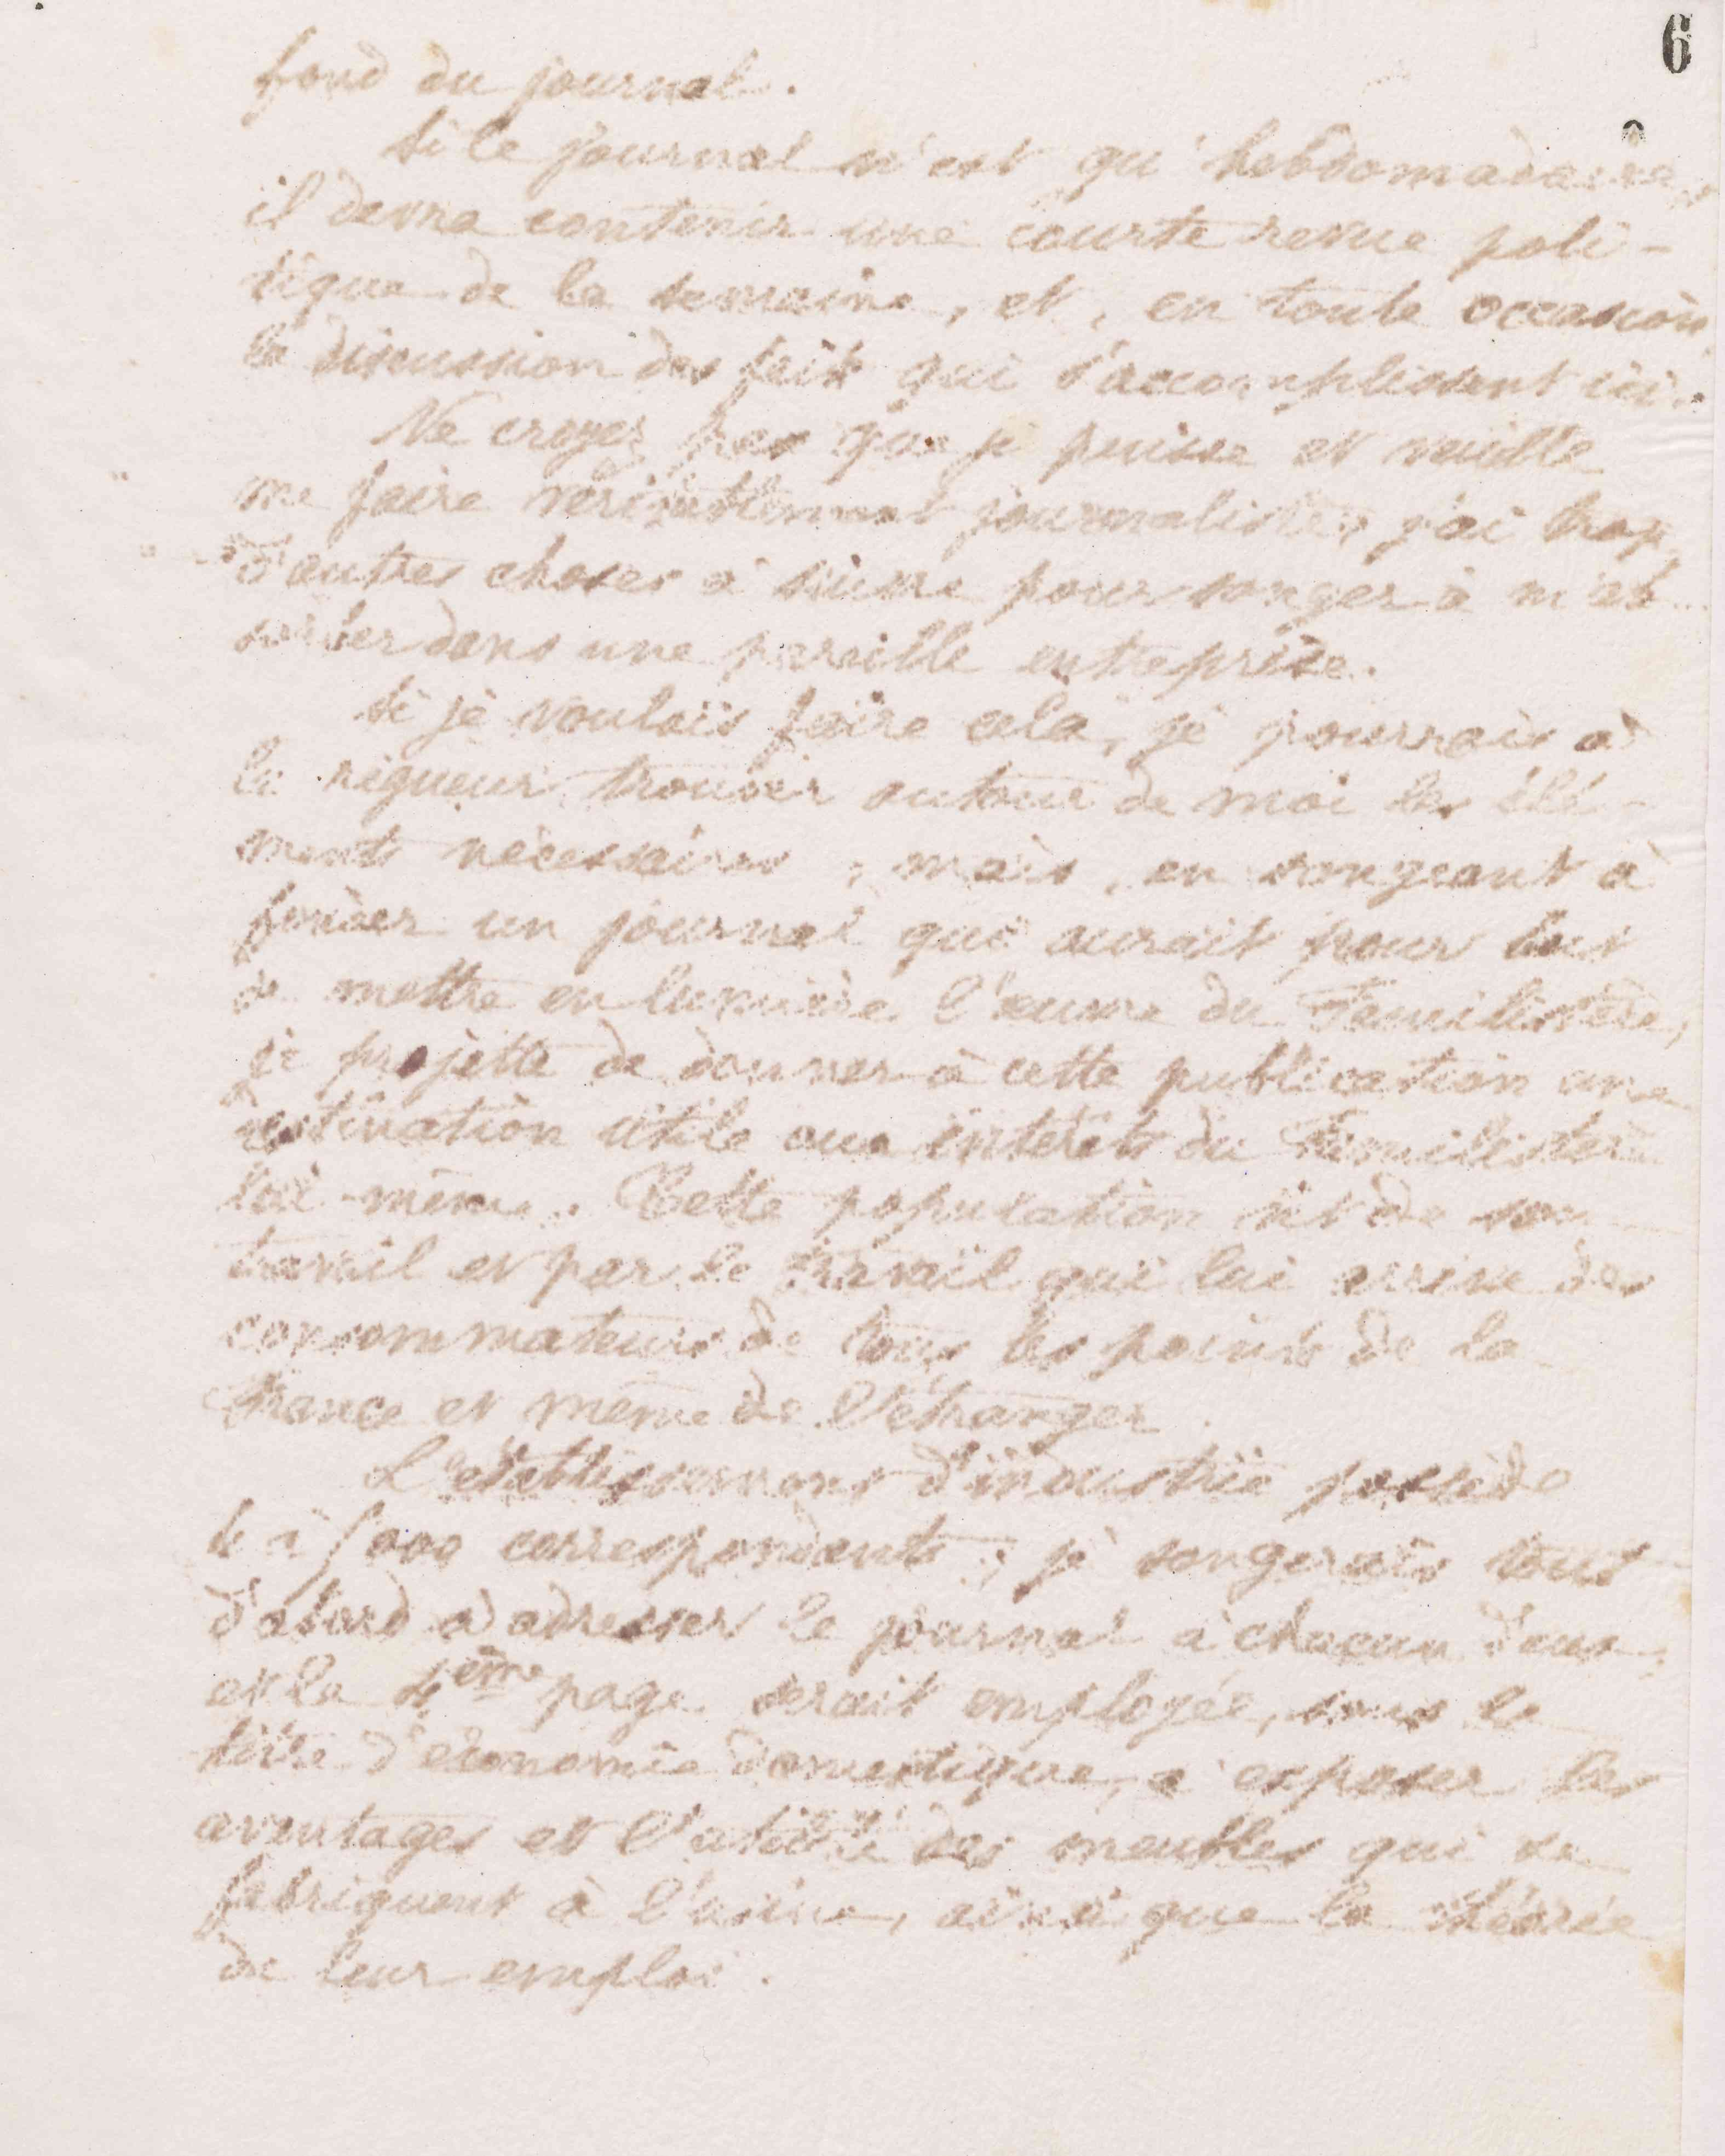 6
fond du journal.
Si le journal n'est qu'hebdomadaire,
il devra contenir une courte revue poli-
tique de la semaine, et, en toute occasion
la discussion des faits qui s'accomplissent ici.
Ne croyez pas que je puisse et veuille
me faire véritablement journaliste, j'ai trop
d'autres choses à suivre pour songer à m'ab-
sorber dans une pareille entreprise.
Si je voulais faire cela, je pourrais à
la rigueur trouver autour de moi les élé-
ments nécessaires ; mais, en songeant à
fonder un journal qui aurait pour but
de mettre en lumière l'œuvre du Familistère,
je projette de donner à cette publication une
destination utile aux intérêts du Familistère
lui-même. Cette population vit de son
travail et par le travail qui lui arrive des
consommateurs de tous les points de la
France et même de l'étranger.
L'établissement d'industrie possède
4 à 5000 correspondants ; je songerais tout
d'abord à adresser le journal à chacun d'eux ;
et la 4ème page serait employée, sous le
titre d'économie domestique, à exposer les
avantages et l'utilité des meubles qui se
fabriquent à l'usine, ainsi que la théorie
de leur emploi.